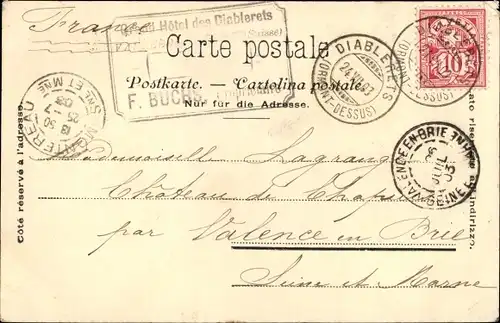 France
Grand Hôtel des Diablerets
(Suisse)
F.
Carte postale
Postkarte. — Cartolina postale.
Nur für die Adresse.
Côté réservé à l'adresse.
DIABLERETS
24.VII.03
(ORMONT-DESSUS)
10
MONTEREAU
SNE ET MNE
VALENCE-EN-BRIE
26
JUIL
03
Mademoiselle Lagrange
Château de
par Valence en Brie
Seine et Marne